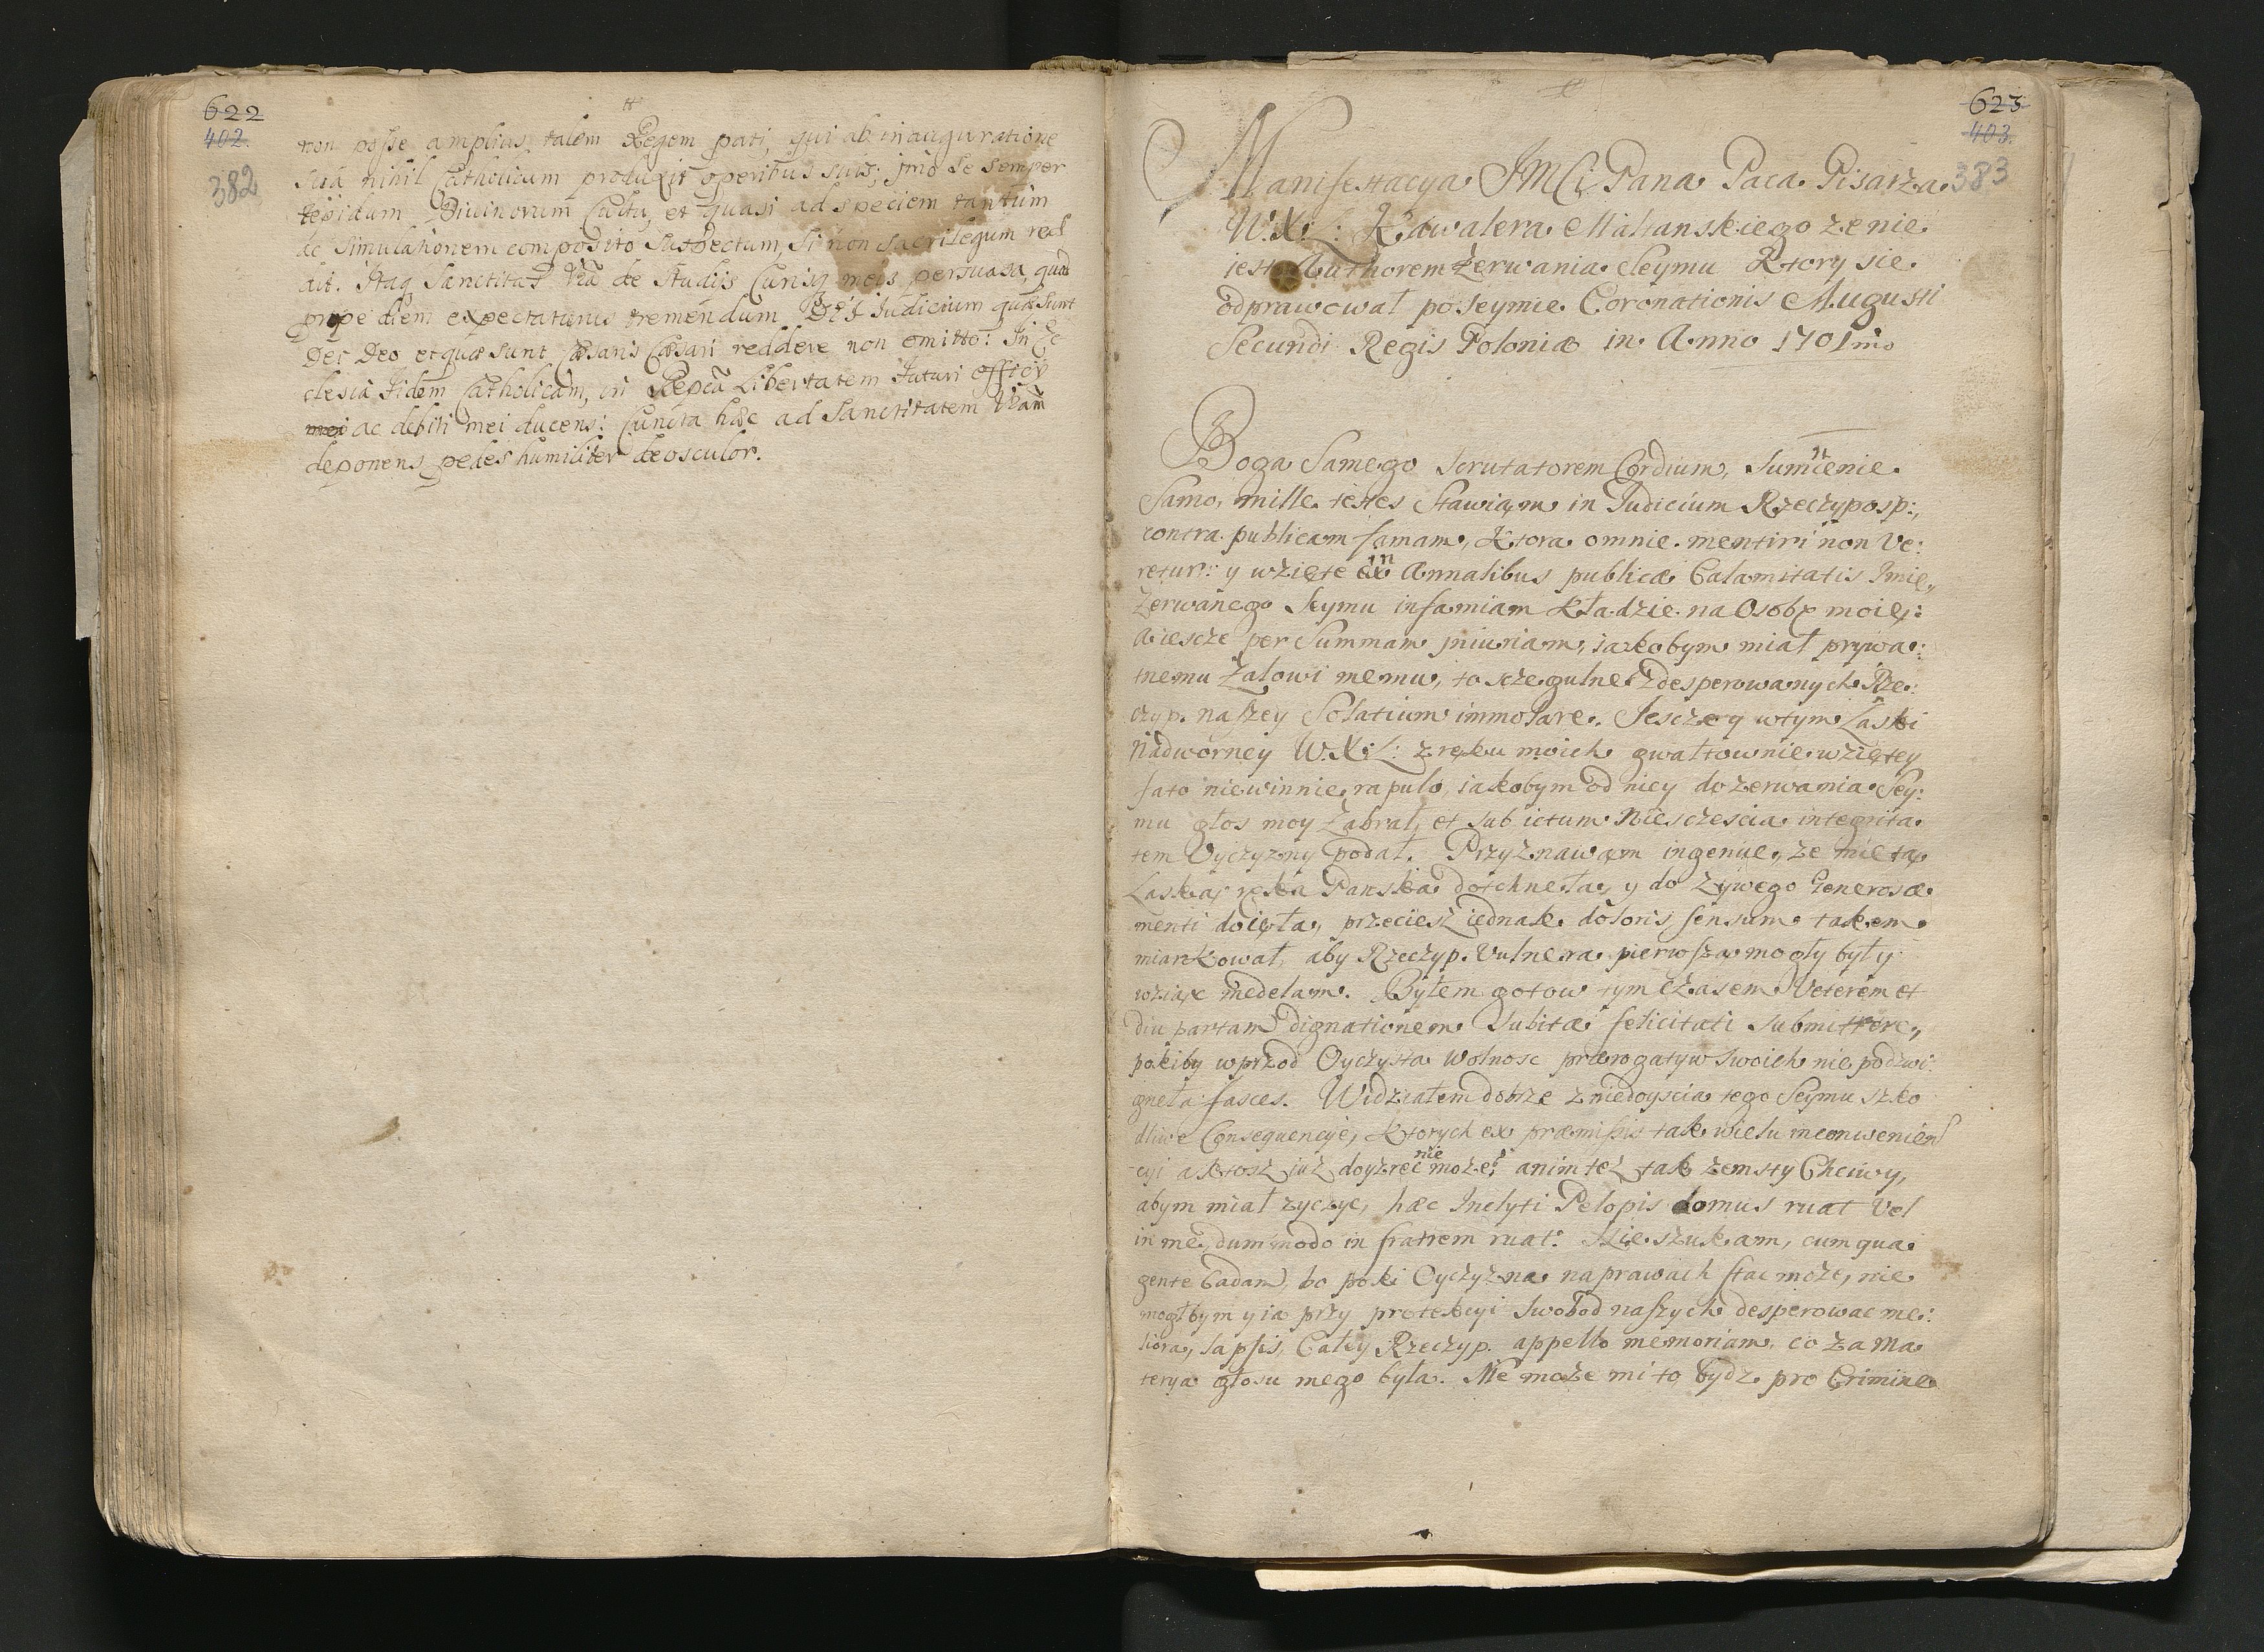 622
402.
382
non posse amplius talem Regem pati, qui ab inauguratione
sua nihil Catholicum produxit operibus suis; jmo se semper
tepidum Divinorum Cultu, et quasi ad speciem tantum
ac simulationem composito suspectum, si non sacrilegum red
dit. Itaq Sanctitas Vra de Studijs Curisq meis persuasa, quod
prope diem expectaturus tremendum Dei Judicium quæ sunt
Dei Deo et quæ sunt Cæsaris Cæsari reddere non omitto: In Ec
clesia fidem Catholicam, in Repca Libertatem futuri officij
ac debiti mei ducens: Cuncta hæc ad Sanctitatem Vram
deponens pedes humiliter deosculor.
623
403.
383
Manifestacya JMCi Pana Paca Pisarza
W.X.L: Kawalera Maltanskiego ze nie
iest Authorem zerwania Seymu Ktory sie
odprawował po Seymie Coronationis Augusti
Secundi Regis Poloniæ in Anno 1701mo
Boga Samego Scrutatorem Cordium, Sumienie
Samo, mille testes Stawiąm in Judicium Rzeczyposp:,
contra publicam famam, Ktora omnie mentiri non Ve:
retur: y wzięte in Annalibus publicæ Calamitatis Imie,
Zerwanego Seymu infamiam Kładzie na Osobę moię:
aiescze per Summam jniuriam, iakobym miał prywa:
tnemu Zalowi memu, to sczegulne zdesperowanych Rze:
czyp. naszey Solatium immolare. Jescze y wtym Łaski
Nadworney W.X.L: z ręku moich gwałtownie wziętey
fato niewinnie rapulo, iakobym od niey do zerwania Sey:
mu głos moy Zabrał, et sub ictum Niesczescia integrita
tem Oyczyzny podał. Przyznawąm ingenue, ze mię tą
Laską ręka Panska dotchneła, y do Zywego Generosæ
menti docięła, przeciesz iednak doloris sensum takem
miarkował, aby Rzeczyp. Vulnera pierwszą mogły były
wziąć medelam. Byłem gotow tym czasem Veterem et
diu partam dignationem Subitæ felicitati submittere,
pokiby wprzod Oyczysta Wolnosc prærogatyw swoich nie podzwi:
gneła fasces. Widziałem dobrze z niedoyscia tego Seymu szko
dliwe Consequencyie, Ktorych ex præmissis tak wielu inconvenien
cyi aktosz juz doyzrec nie moze? anim tez tak zemsty Chciwy,
abym miał zyczyc, hæc Inclyti Pelopis domus ruat Vel
in me, dummodo in fratrem ruat: Nie szukam, cum qua
gente Cadam, bo poki Oyczyzna na prawach stac moze, nie
mogłbym y ia przy protekcyi Swobod naszych desperowac me:
liora, lapsis, Całey Rzeczyp. appello memoriam, co za Ma
terya głosu mego była. Nie moze mi to bydz pro Crimine